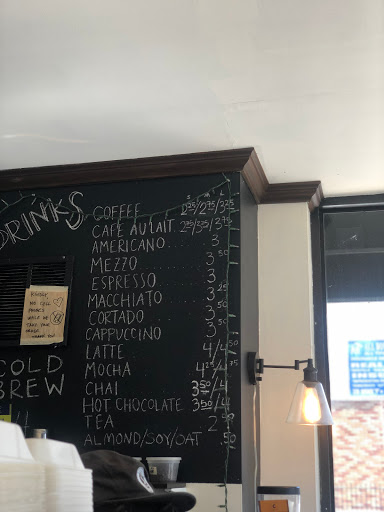 DRINKS
S M L
COFFEE 2 25/2 75/3 25
CAFE AU LAIT 2 75/3 25/3 75
AMERICANO 3
MEZZO 3 50
ESPRESSO 3
MACCHIATO 3 25
CORTADO 3 50
CAPPUCCINO 3 50
LATTE 4/4 50
MOCHA 4 25/4 75
CHAI 3 50/4
HOT CHOCOLATE 3 50/4
TEA 2 50
ALMOND/SOY/OAT .50
COLD
BREW